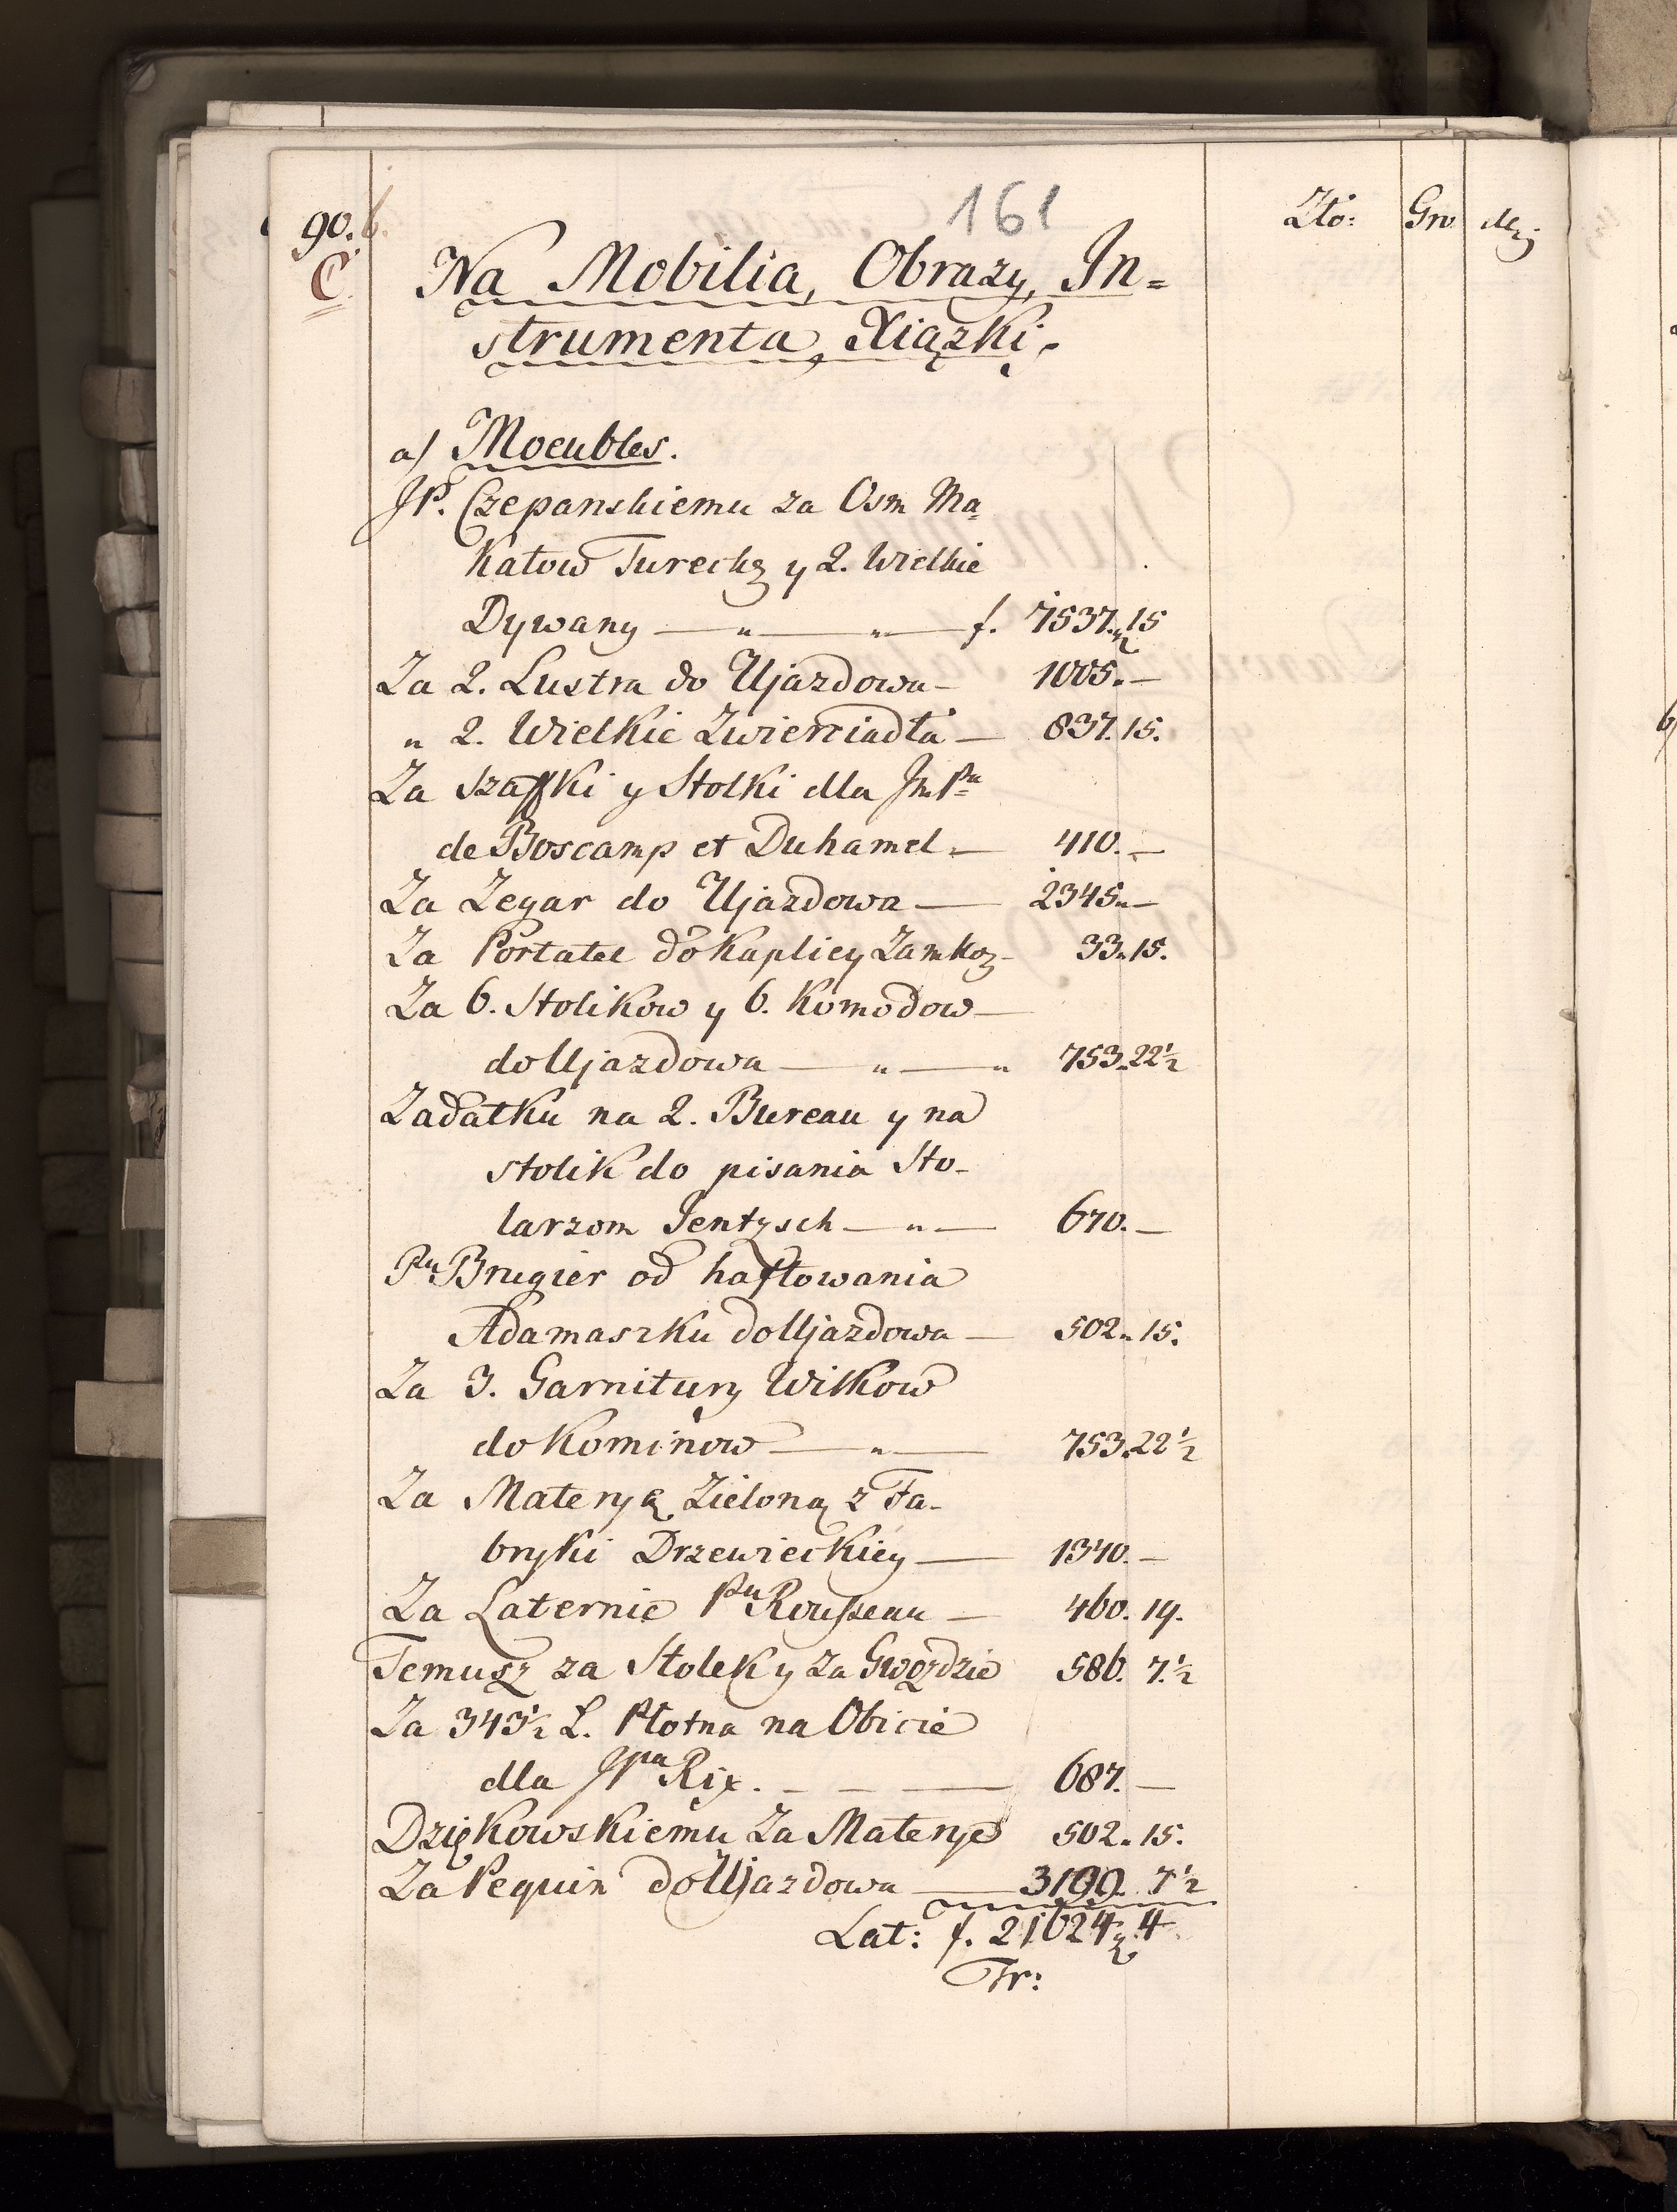 161
90. 6.
C.
Zło: Gro dez:
Na Mobilia, Obrazy, In=
strumenta, Xiązki.
a) Moeubles.
JP. Czepanskiemu za Osm Ma=
Katow Tureckz y 2. Wielkie
Dywany — " — " — f. 7537. 15
Za 2. Lustra do Ujazdowa — 1005. —
" 2. Wielkie Zwierciadła — 837. 15.
Za Szaffki y Stolki dla JmPa
de Boscamp et Duhamel. — 410. —
Za Zegar do Ujazdowa — 2345. —
Za Portatel do Kaplicy Zamkoz — 33. 15.
Za 6. Stolikow y 6. Komodow —
do Ujazdowa — " — " 753. 22½
Zadatku na 2. Bureau y na
stolik do pisania Sto-
larzom Jentzsch — " — 670. —
Pu Brugier od haftowania
Adamaszku do Ujazdowa — 502. 15.
Za 3. Garnitury Wilkow
do Kominow — " — 753. 22½
Za Materyą Zieloną z Fa-
bryki Drzewieckiey — 1340. —
Za Laternie Pu Rousseau — 460. 19.
Temusz za Stolek y za Gwozdzie 586. 7½
Za 343½ Ł. Płotna na Obicie
dla JPa Rix. — — — 687. —
Dziękowskiemu Za Materye 502. 15.
Za Pequin do Ujazdowa — 3199. 7½
Lat: f. 21624. 4
Tr: